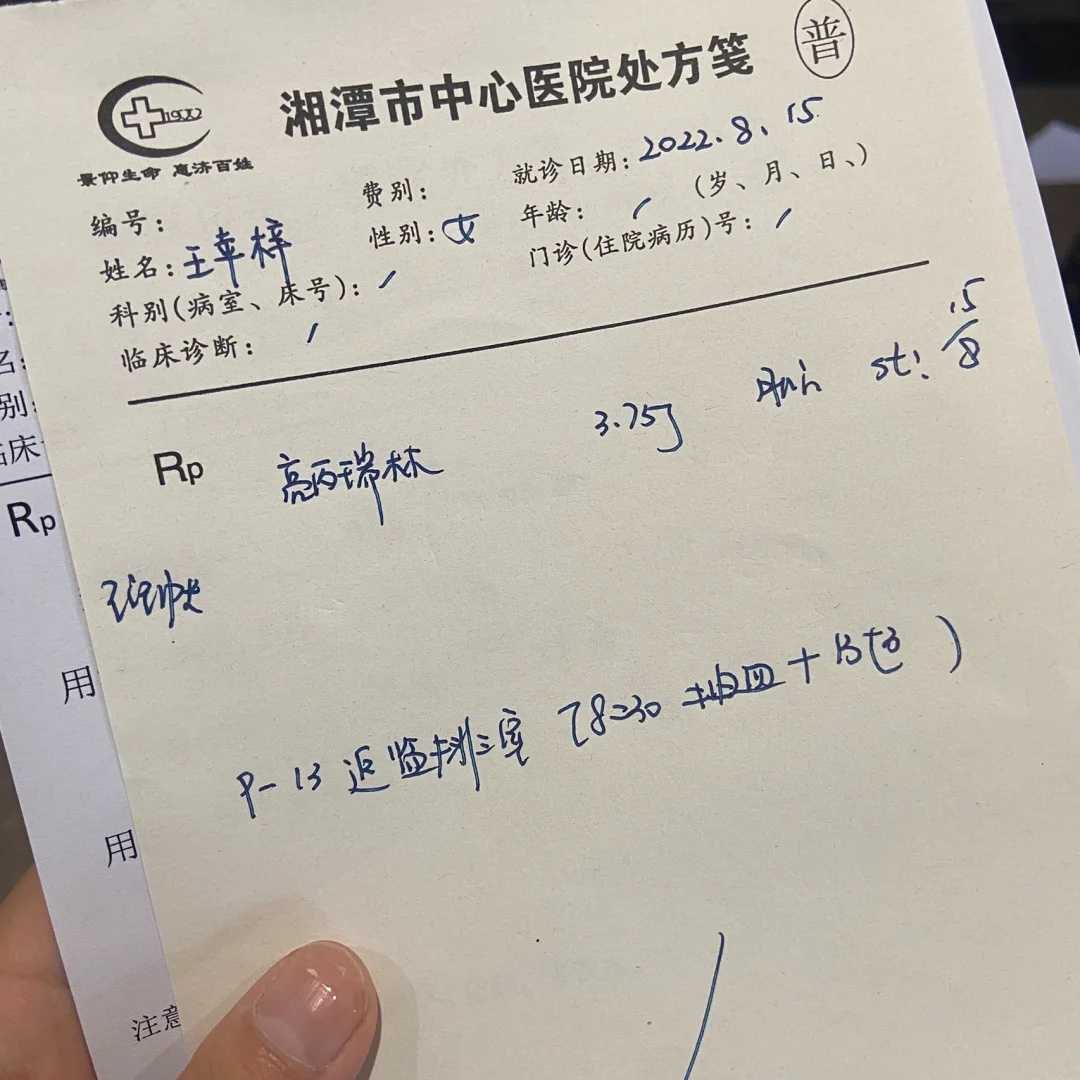 普
湘潭市中心医院处方笺
1900
景仰生命 惠济百姓
编号:
费别:
就诊日期: 2022.8.15
姓名: 王苹梓
性别: 女
年龄: / (岁、月、日、)
科别(病室、床号): /
门诊(住院病历)号: /
临床诊断: /
Rp
亮丙瑞林 3.75g st! 15/8
返监排三室 (8:30 抽血+B超)
名:
别:
临床
Rp
用
用
注意